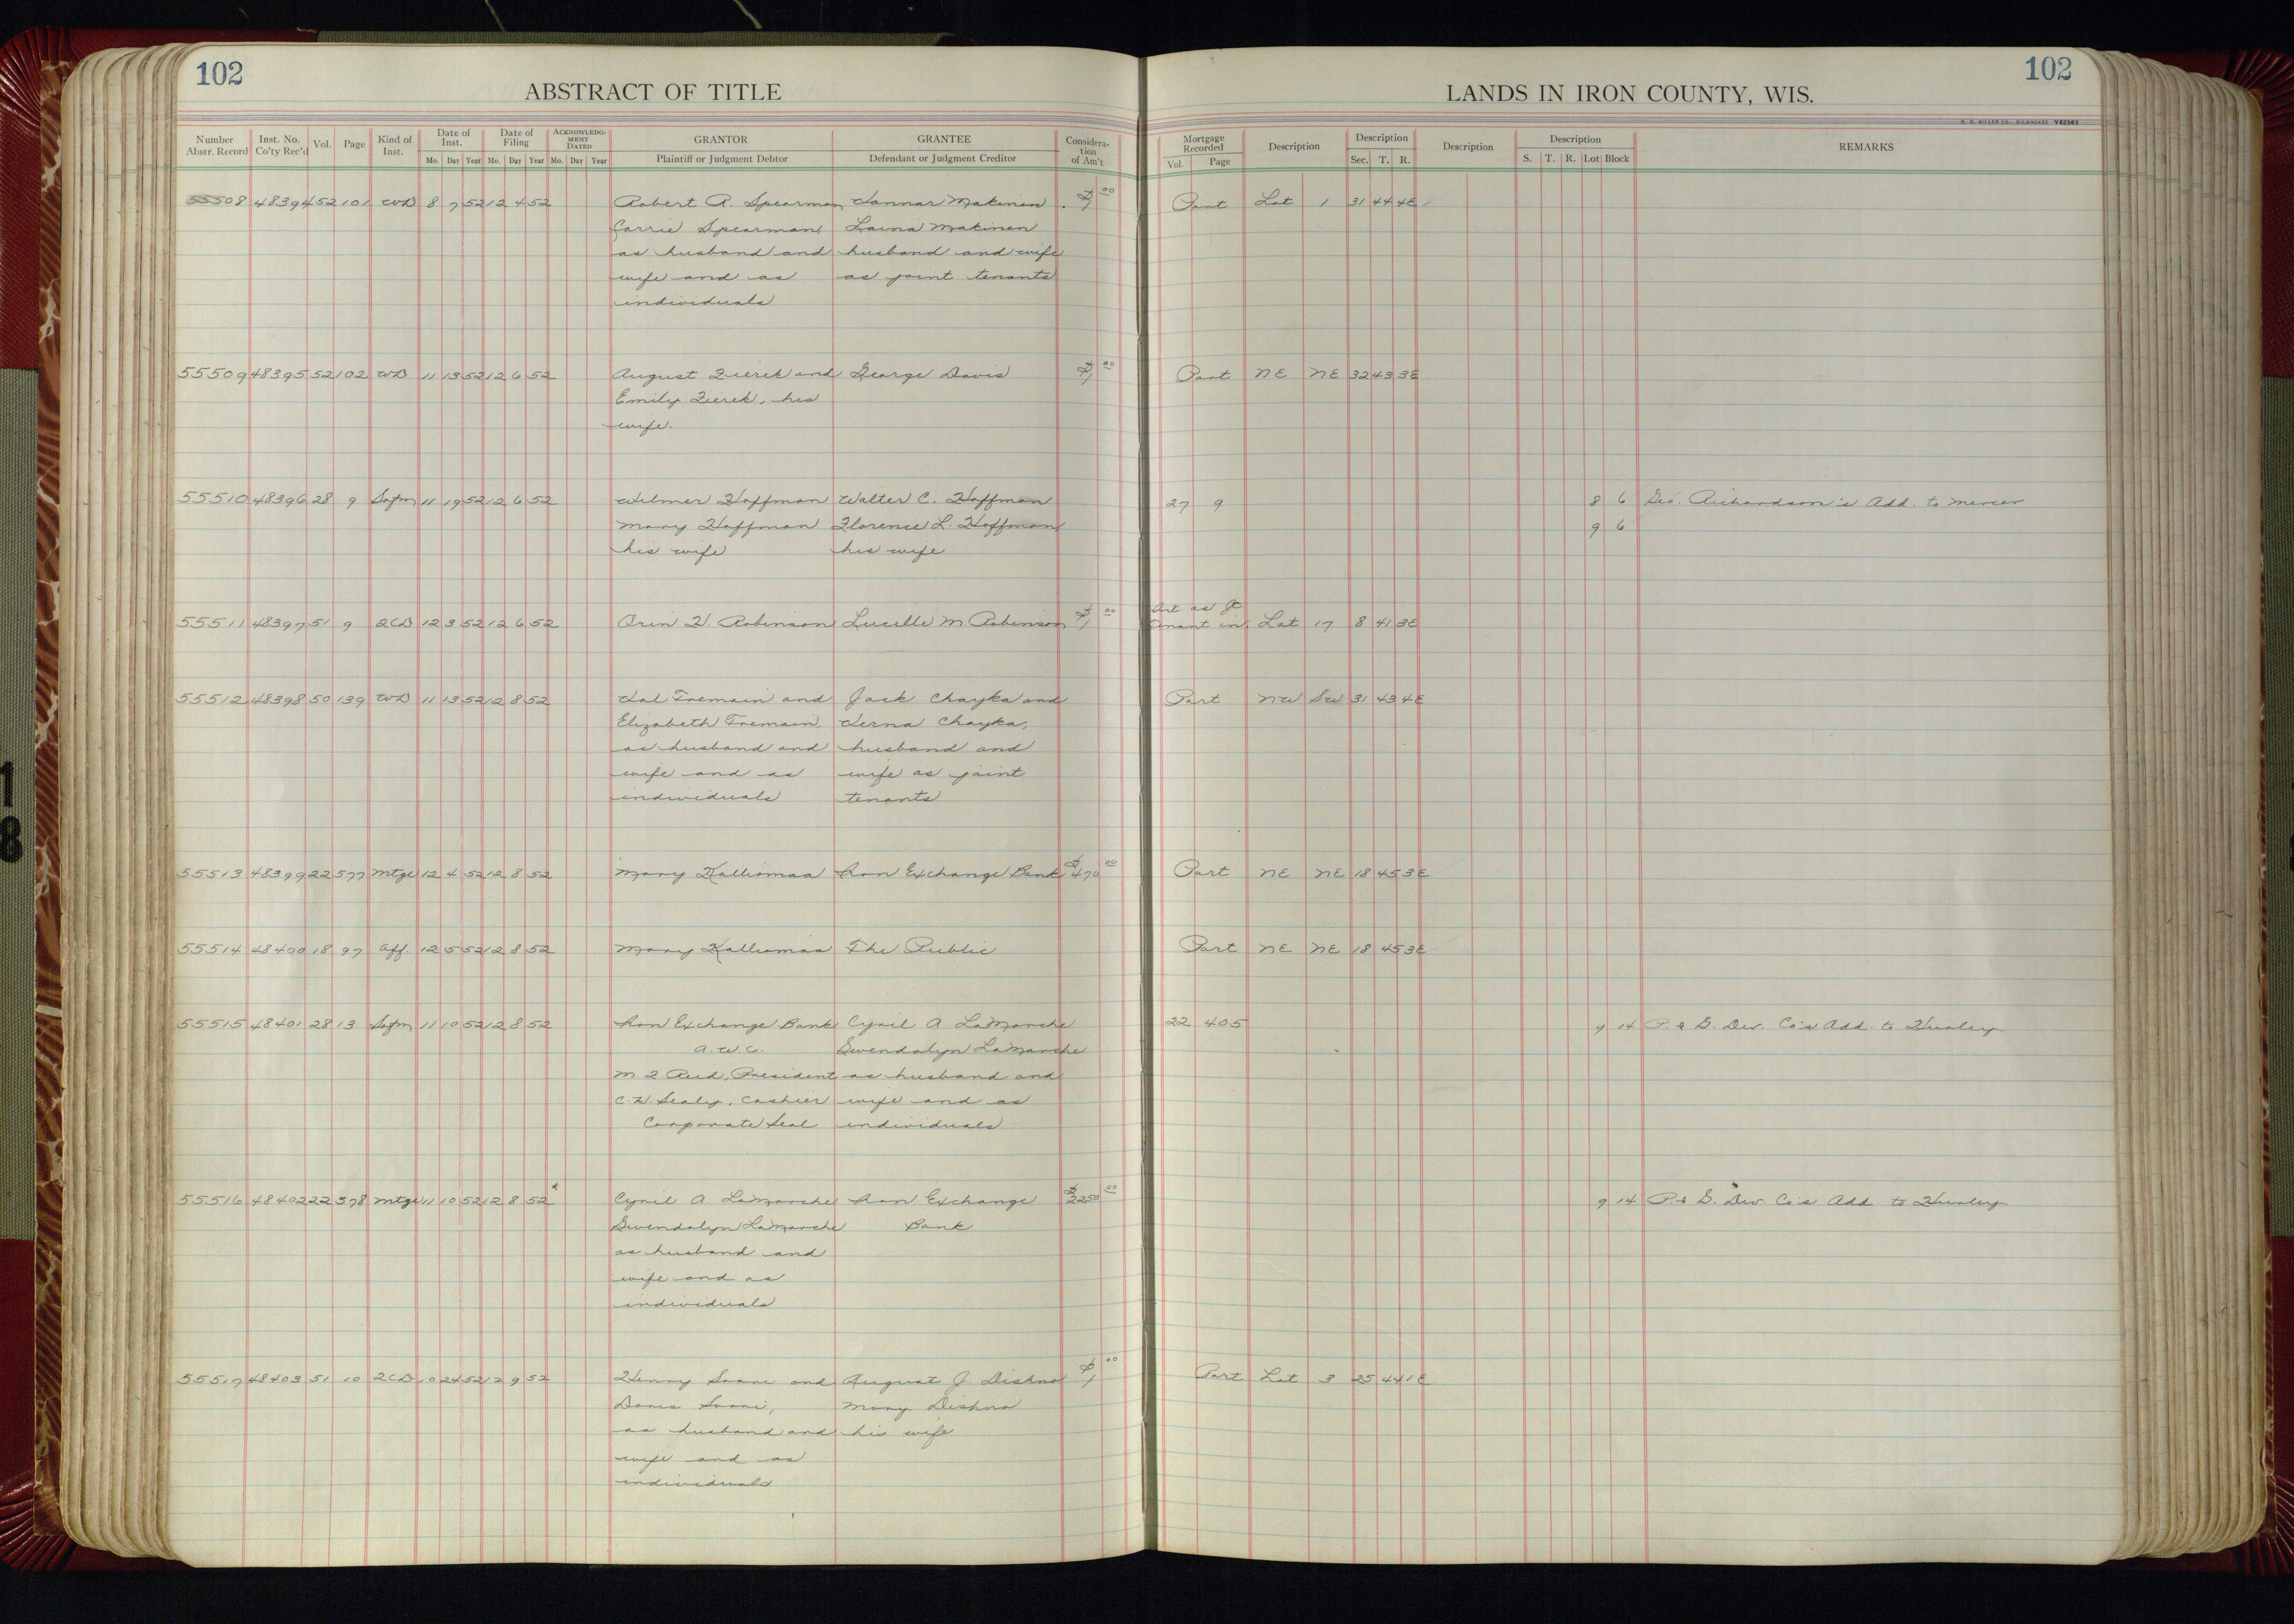 102
ABSTRACT OF TITLE
LANDS IN IRON COUNTY, WIS.
102
H. C. MILLER CO., MILWAUKEE Y52963
Number Abstr. Record Inst. No. Co'ty Rec'd Vol. Page Kind of Inst. Date of Inst. Mo. Day Year Date of Filing Mo. Day Year ACKNOWLEDGMENT DATED Mo. Day Year GRANTOR Plaintiff or Judgment Debtor GRANTEE Defendant or Judgment Creditor Consideration of Am't Mortgage Recorded Vol. Page Description Description Sec. T. R. Description Description S. T. R. Lot Block REMARKS
55508 48394 52 101 WD 8 7 52 12 4 52 Robert A. Spearman Makinen $1 00 Part Lot 1 31 44 4E
Carrie Spearman Laina Makinen
as husband and husband and wife
wife and as as joint tenants
individuals
55509 48395 52 102 WD 11 13 52 12 6 52 August Zierek and George Davis $1 00 Part NE NE 32 43 3E
Emily Zierek, his
wife.
55510 48396 28 9 11 19 52 12 6 52 Wilmer Hoffman Walter C. Hoffman 27 9 8 6 Geo. Richardson's Add. to Mercer
Mary Hoffman Florence L. Hoffman 9 6
his wife his wife
55511 48397 51 9 2CD 12 3 52 12 6 52 Orin H. Robinson Lucille M Robinson $1 00 Int. as Jt. Lot 17 8 41 3E
Tenant in
55512 48398 50 139 WD 11 13 52 12 8 52 Hal Tremain and Jack Chayka and Part NW SW 31 43 4E
Elizabeth Tremain, Verna Chayka,
as husband and husband and
wife and as wife as joint
individuals tenants
55513 48399 22 577 Mtge 12 4 52 12 8 52 Mary Kalliomaa Iron Exchange Bank $470 00 Part NE NE 18 45 3E
55514 48400 18 97 Aff. 12 5 52 12 8 52 Mary Kalliomaa The Public Part NE NE 18 45 3E
55515 48401 28 13 11 10 52 12 8 52 Iron Exchange Bank Cyril A. LaMarche 22 405 9 14 P. & G. Dev. Co's Add. to Hurley
A.W.C. Gwendolyn LaMarche
M. J. Reid, President as husband and
C.H. Sealy, Cashier wife and as
Corporate Seal individuals
55516 48402 22 578 Mtge 11 10 52 12 8 52 Cyril A. LaMarche Iron Exchange $2250 00 9 14 P. & G. Dev. Co's Add. to Hurley
Gwendolyn LaMarche Bank
as husband and
wife and as
individuals
55517 48403 51 10 2CD 10 24 52 12 9 52 Henry Saari and August J. Dishno $1 00 Part Lot 3 25 44 1E
Doris Saari, Mary Dishno
as husband and his wife
wife and as
individuals
1
8